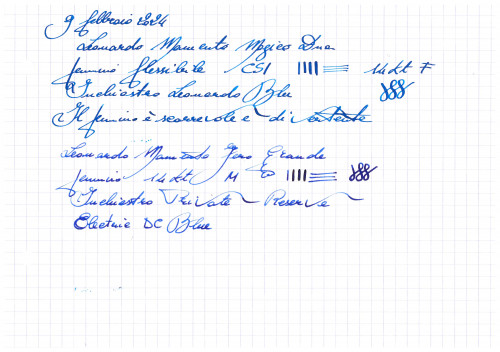 9 febbraio 2024
Leonardo Momento Magico Dna
pennino flessibile CSI 14 kt F
Inchiostro Leonardo Blu
Il pennino è scorrevole e di
Leonardo Momento Zero Grande
pennino 14 kt M
Inchiostro Private Reserve
Electric DC Blue